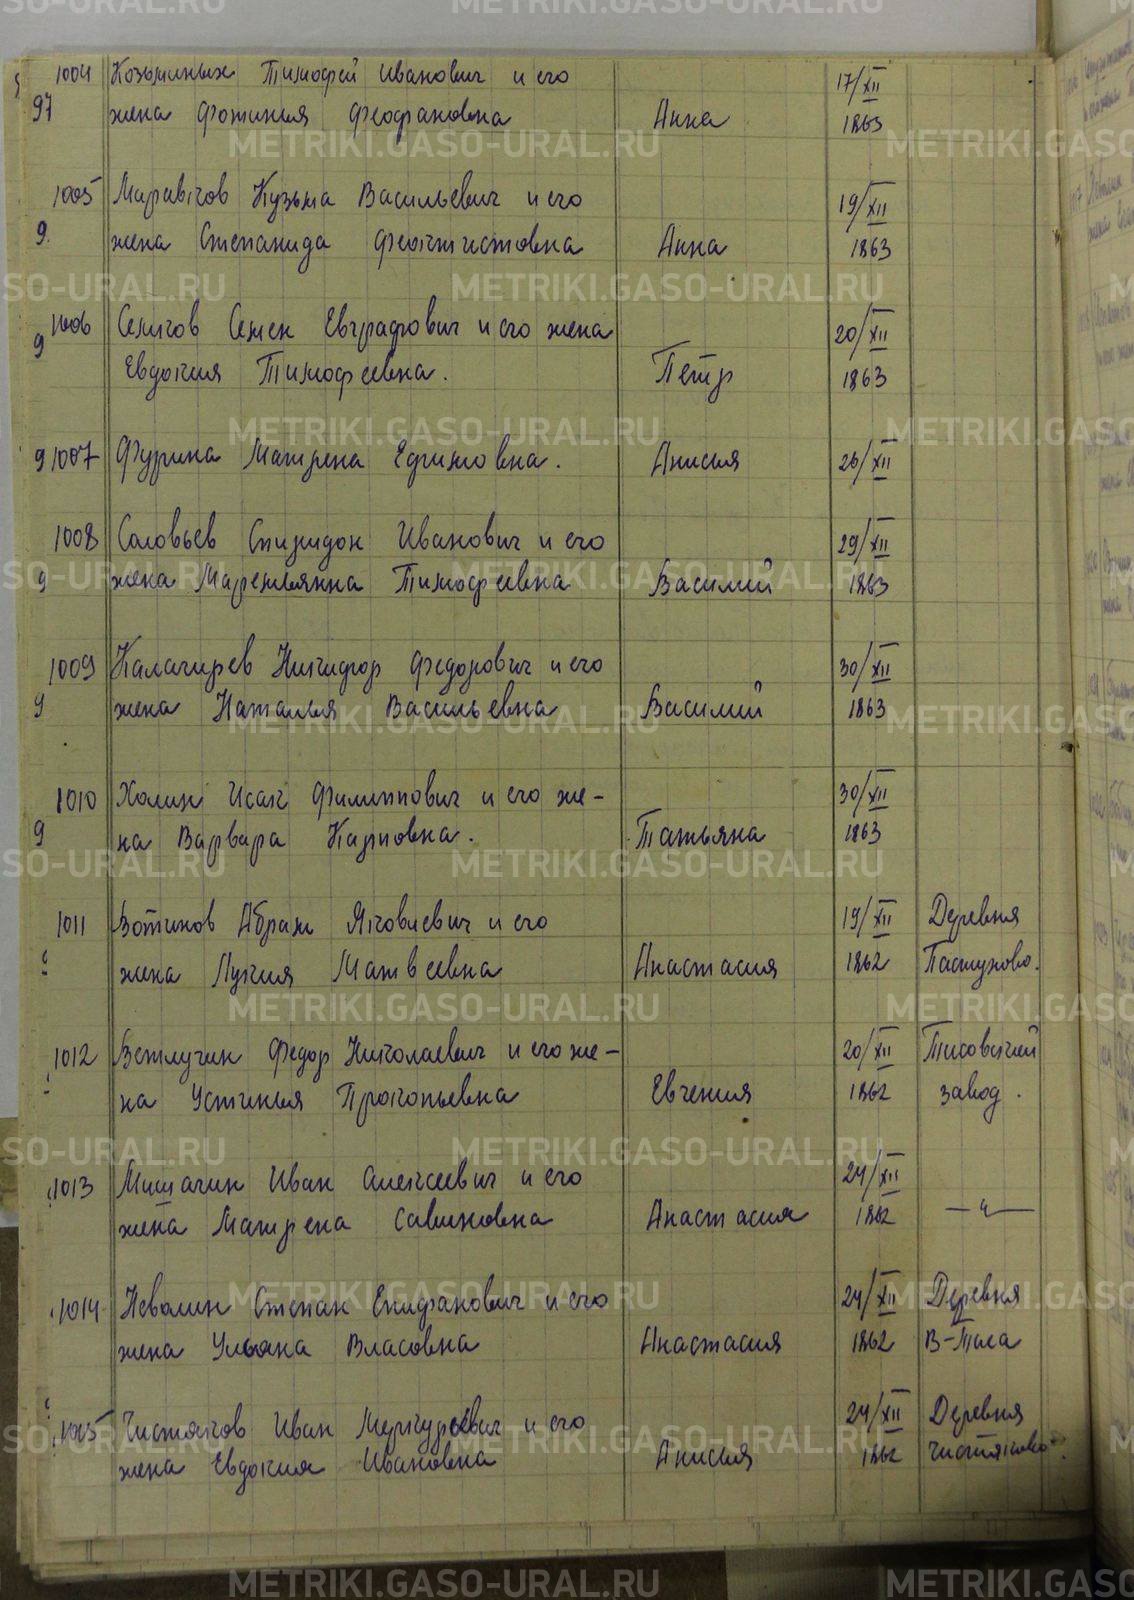 1004 Козьминых Тимофей Иванович и его 17/XII
97 жена Фотинья Феофановна Анна 1863
1005 Кузьма Васильевич и его 19/XII
9. жена Степанида Феоктистовна Анна 1863
1006 Семен Евграфович и его жена 20/XII
9 Евдокия Тимофеевна. Пётр 1863
9 1007 Фурина Матрена Ефимовна. Анисья 26/XII
1008 Соловьев Спиридон Иванович и его 29/XII
9 жена Маремьянна Тимофеевна Василий 1863
1009 Калагирев Никифор Федорович и его 30/XII
9 жена Наталья Васильевна Василий 1863
1010 Холин Исак Филиппович и его же- 30/XII
9 на Варвара Карповна. Татьяна 1863
1011 Вотинов Абрам Яковлевич и его 19/XII Деревня
жена Лукия Матвеевна Анастасия 1862 Пастухово.
1012 Ветлугин Федор Николаевич и его же- 20/XII Висовский
на Устинья Прокопьевна Евгения 1862 завод.
1013 Мишагин Иван Алексеевич и его 24/XII
жена Матрена Савиновна Анастасия 1862 —"—
1014 Неволин Степан Епифанович и его 24/XII Деревня
жена Ульяна Власовна Анастасия 1862
1015 Чистяков Иван Меркурьевич и его 24/XII Деревня
жена Евдокия Ивановна Анисья 1862 Чистяково.
METRIKI.GASO-URAL.RU